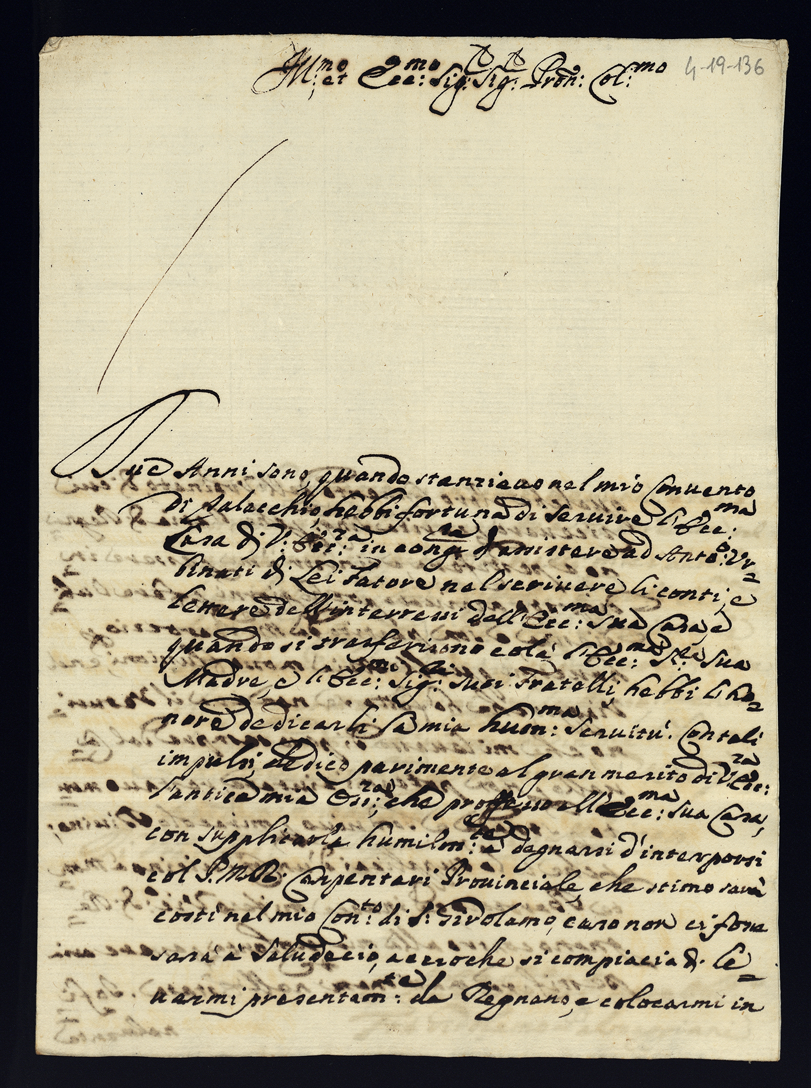 Ill:mo et Ecc:mo Sig: Sig: Pron: Col:mo
4-19-136
Due Anni sono, quando stanziavo nel mio Convento
di Salacchio, hebbi fortuna di servire l'Ecc:ma
Casa di V: Ecc:za in cong:ra d'assistere ad Anto:o Ur=
binati di Lei Fatore nel scrivere li conti, e
lettere dell'interressi dell'Ecc:ma Sua Casa, e
quando si trasferirono colà l'Ecc:ma Sig:ra Sua
Madre, e l'Ecc:mi Sig:ri suoi Fratelli, hebbi l'ho=
nore dedicarli la mia hum:ma servitù. Con tali
impulsi, dedico parimente al gran merito di V: Ecc:za
l'antica mia Oss:za, che professo all'Ecc:ma sua Casa,
con supplicarla humilm:te à degnarsi d'interporsi
col P. M. R: Carpentari Provinciale, che stimo sarà
costi nel mio Con:to di S: Girolamo, e caso non ci fosse
sarà à Saludecio, accioche si compiacia di le=
varmi presentem:te da Regnano, e colocarmi in